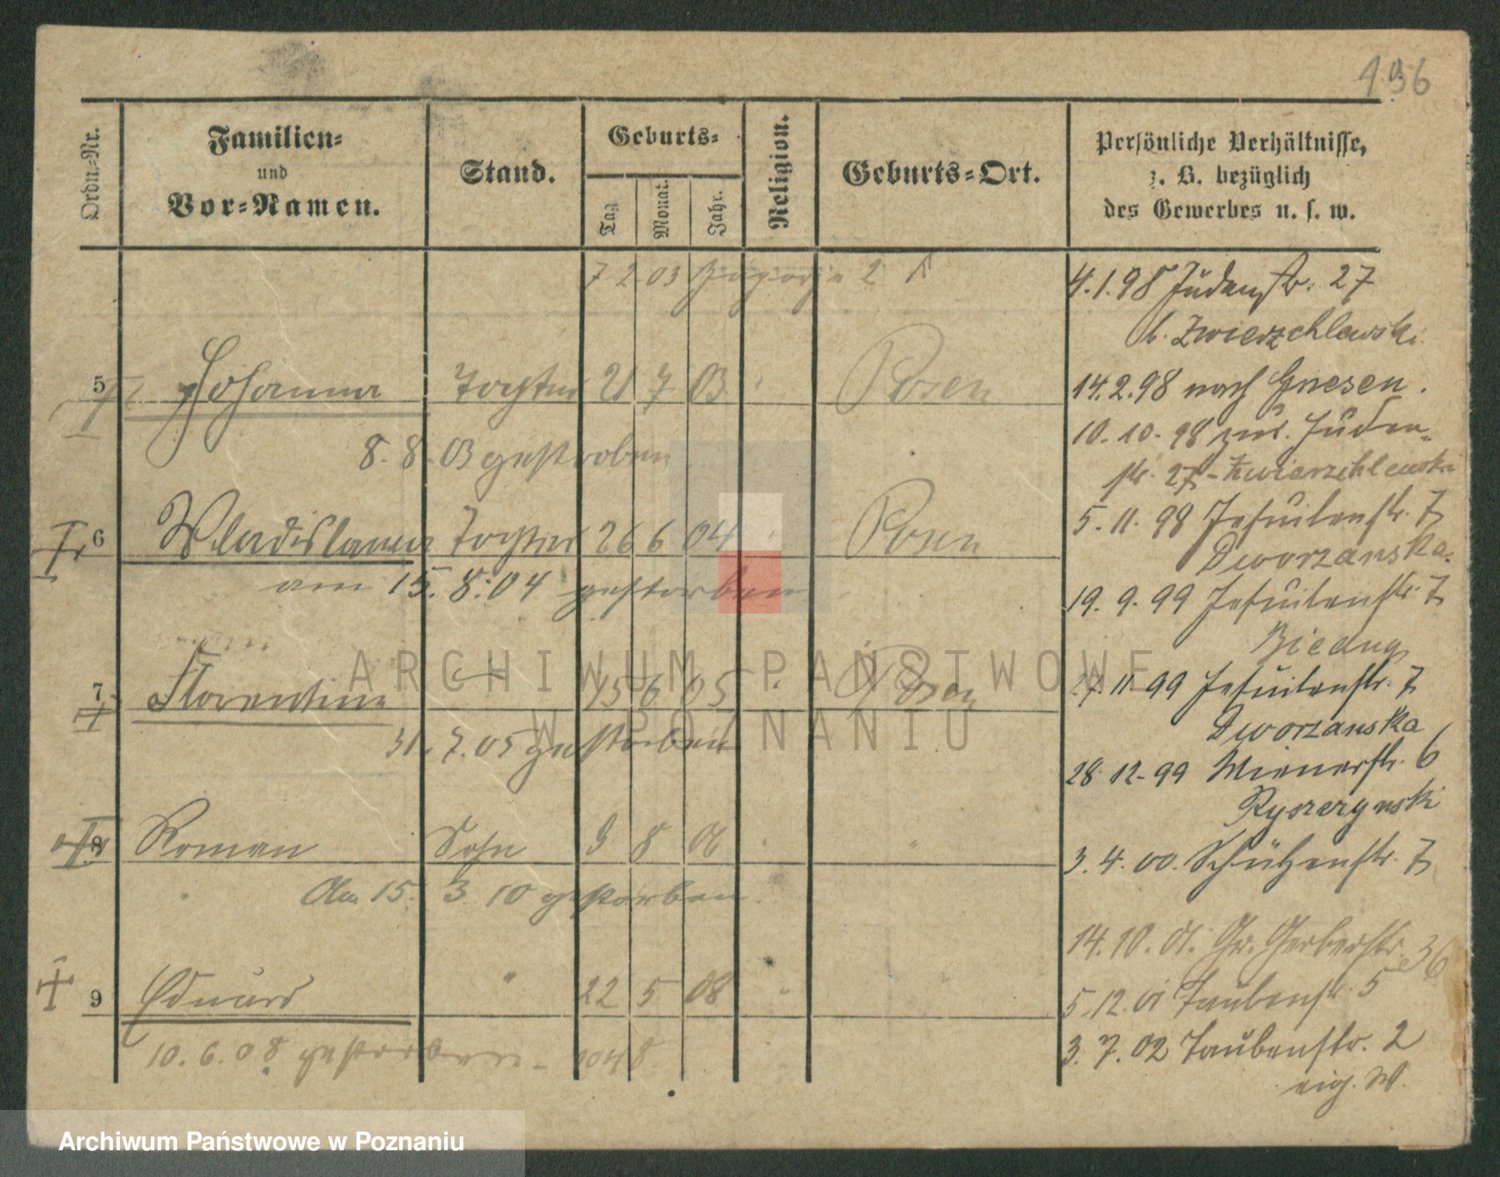 136
Ordn.-Nr.
Familien-
und
Vor-Namen.
Stand.
Geburts-
Tag
Monat.
Jahr.
Religion.
Geburts-Ort.
Persönliche Verhältnisse,
z. B. bezüglich
des Gewerbes u. s. w.
7 2 03 2
4.1.98 Judenstr. 27
b. Zwierzchlewski
5 Johanna Tochter 21 7 03 Posen
14.2.98 nach Gnesen.
8.8.03 gestorben
10.10.98 zur. Juden-
str. 27 - Zwierzchlewski
6 Wladislawa Tochter 26 6 04 Posen
5.11.98 Jesuitenstr. 7
Dworzanska.
am 15.8.04 gestorben
19.9.99 Jesuitenstr. 7
7 Florentine 15 6 05 Posen
27.11.99 Jesuitenstr. 7
Dworzanska
31.7.05 gestorben
28.12.99 Wienerstr. 6
Ryszczynski
8 Roman Sohn 9 8 06 "
3.4.00. Schützenstr. 7
Am 15. 3 10 gestorben.
14.10.01. Gr. Gerberstr. 36
9 Eduard " 22 5 08 "
5.12.01 Taubenstr. 5
10.6.08 gestorben -
3.7.02 Taubenstr. 2
eig. W.
ARCHIWUM PAŃSTWOWE
W POZNANIU
Archiwum Państwowe w Poznaniu